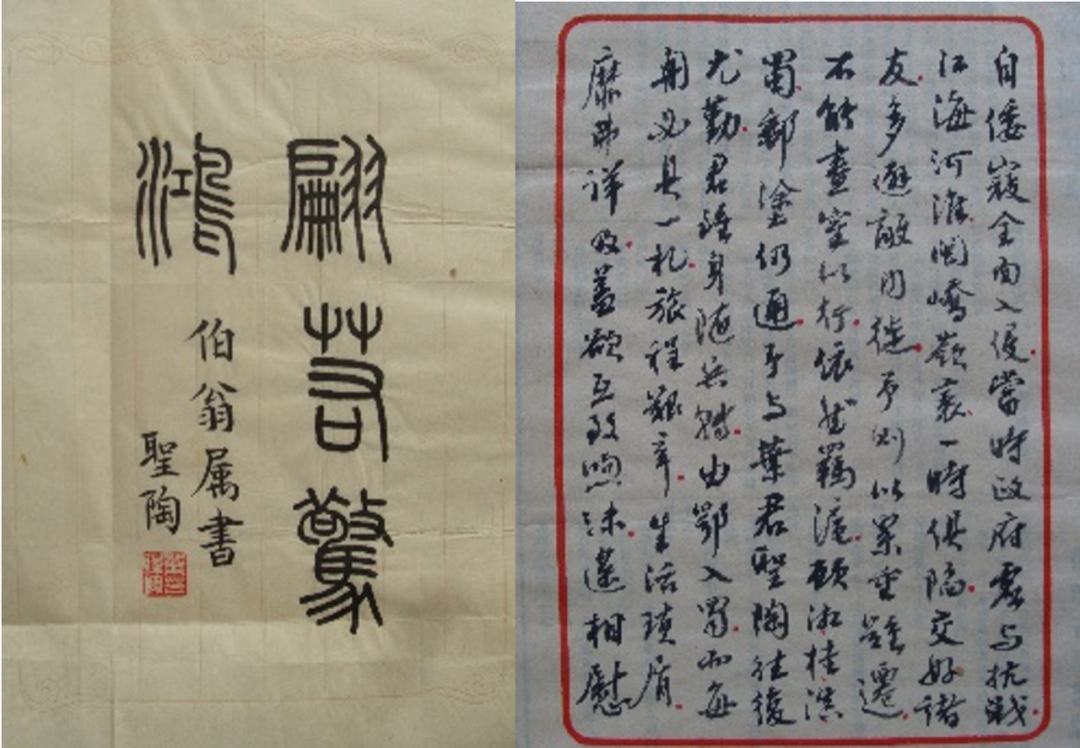 翩若驚
鴻
伯翁属書
聖陶
自倭寇全面入侵當時政府虛与抗戰
江海河淮閩嶠嶺表一時俱陷交好諸
友多避敵内徙予則以累重難遷
不能盡室以行依然羈滬顧湘桂滇
蜀郵塗仍通予与葉君聖陶往復
尤勤君身随兵轉由鄂入蜀而每
周必具一札旅程艱辛生活瑣屑
靡弗詳及蓋欲互致喣沫遠相慰